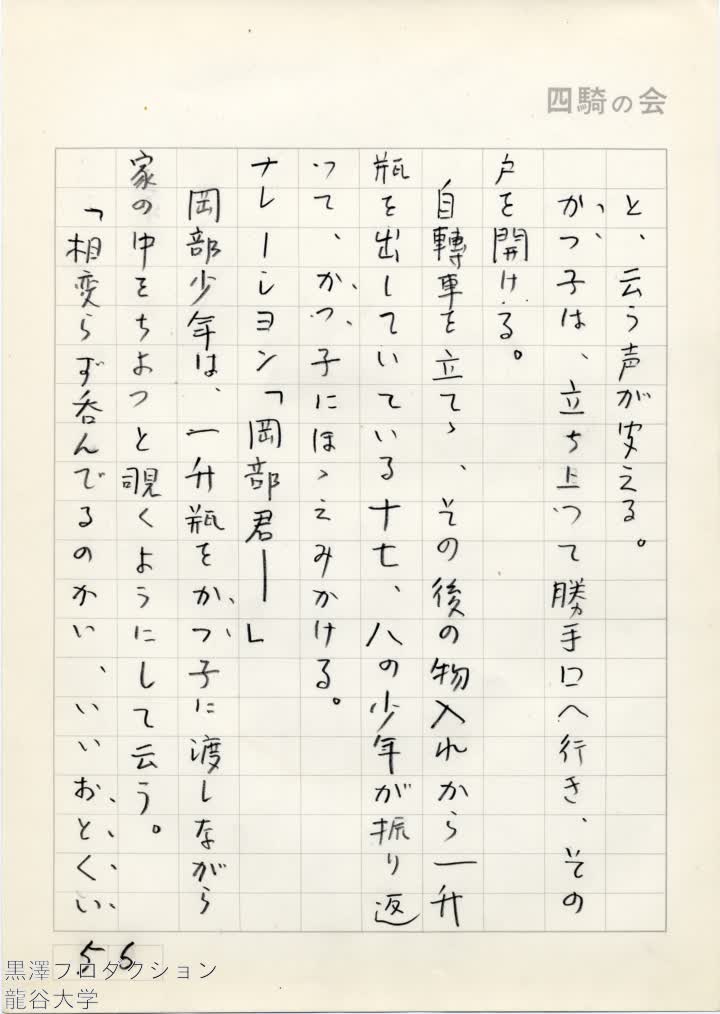 四騎の会
と、云う声が聞える。
かつ子は、立ち上つて勝手口へ行き、その
戸を開ける。
自轉車を立てゝ、その後の物入れから一升
瓶を出していている十七、八の少年が振り返
つて、かつ子にほゝえみかける。
ナレーシヨン「岡部君――」
岡部少年は、一升瓶をかつ子に渡しながら
家の中をちよつと覗くようにして云う。
「相変らず呑んでるのかい、いいおとくい
56
黒澤プロダクション
龍谷大学